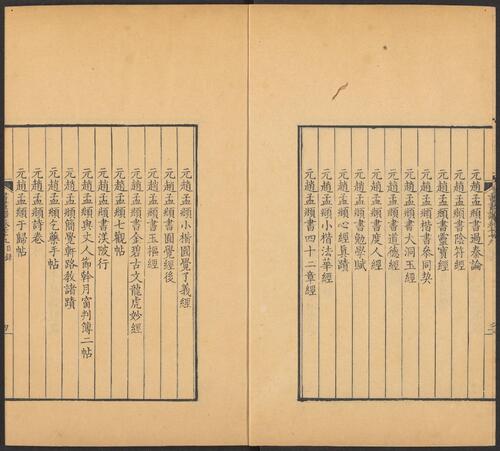 元趙孟頫書過秦論
元趙孟頫書陰符經
元趙孟頫書靈寶經
元趙孟頫楷書參同契
元趙孟頫書大洞玉經
元趙孟頫書道德經
元趙孟頫書度人經
元趙孟頫書勉學賦
元趙孟頫心經真蹟
元趙孟頫小楷法華經
元趙孟頫書四十二章經
元趙孟頫小楷圓覺了義經
元趙孟頫書圓覺經後
元趙孟頫書玉樞經
元趙孟頫書金碧古文龍虎妙經
元趙孟頫七觀帖
元趙孟頫書渼陂行
元趙孟頫與丈人節幹月窗判簿二帖
元趙孟頫簡覺軒路教諸蹟
元趙孟頫乞藥手帖
元趙孟頫詩卷
元趙孟頫于歸帖